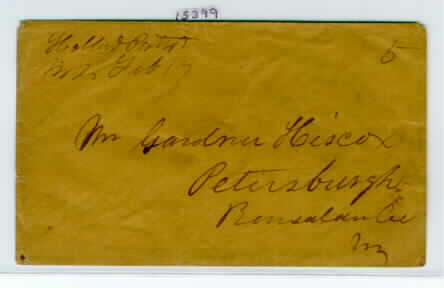 15399
Holland Patent
NY Feb 17
5
Mr Gardner Hiscox
Petersburgh
Rensalaer Co
NY